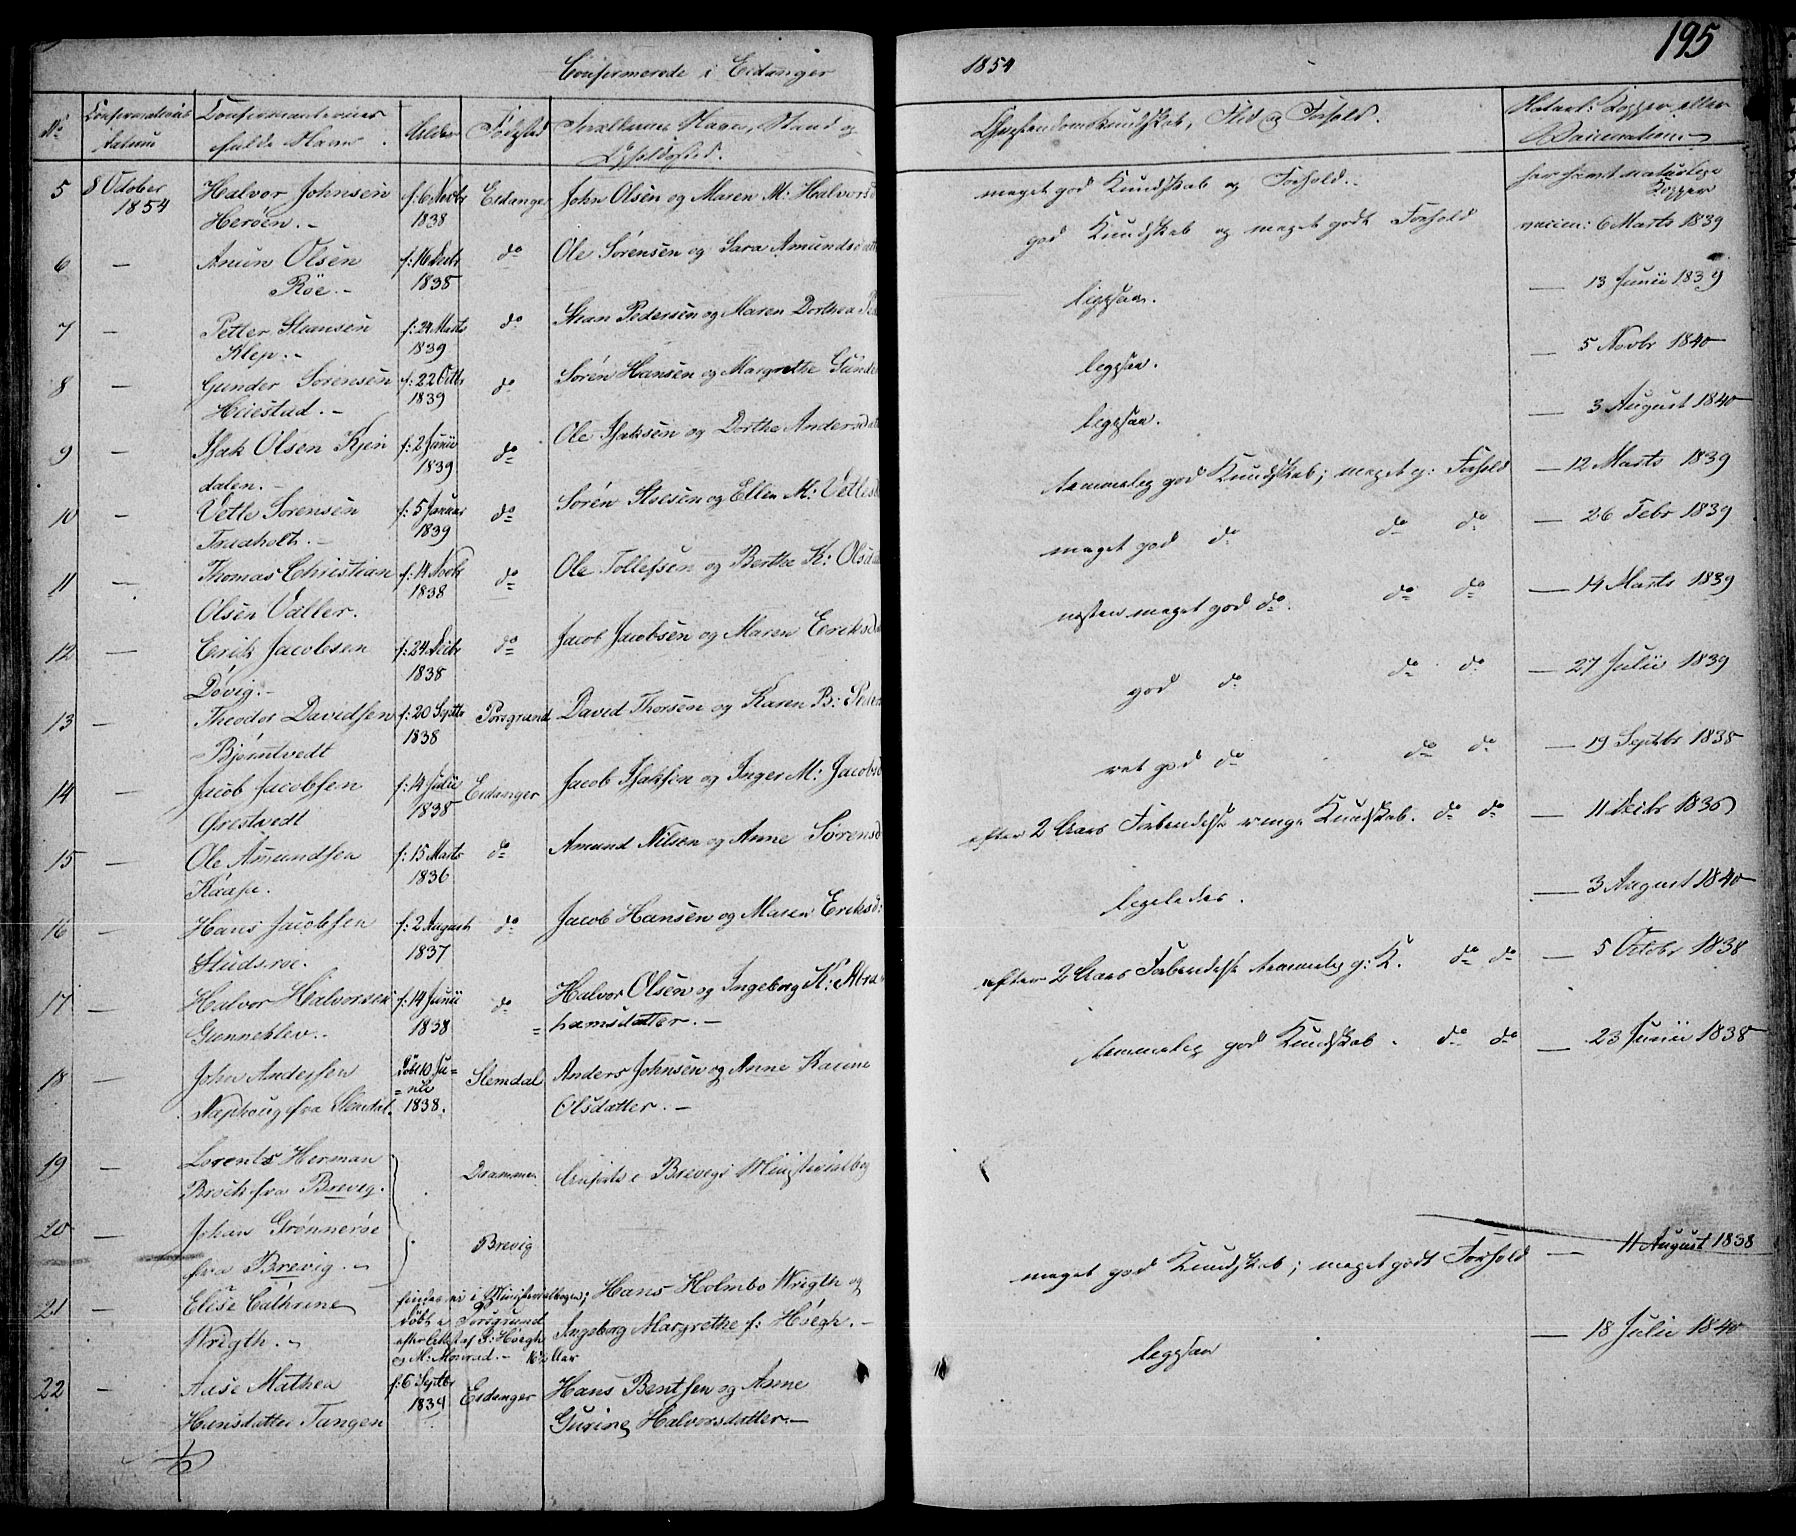 195
Confirmerede i Eidanger 1854
No
Confirmations datum
Confirmanternes fulde Navn
Alder
Fødested
Forældrenes Navn, Stand og Opholdssted.
Christendomskundskab, Flid og Forhold.
Naturl: Kopper eller Vaccination
5 8 October 1854 Halvor Johnsen Herøen. f: 6 Novbr 1838 Eidanger John Olsen og Maren M: Halvorsd meget god Kundskab og Forhold. har havt naturlige Kopper
6 — Anun Olsen Röe. f: 16 Decbr 1838 do Ole Sörensen og Sara Amundsdatt god Kundskab og meget godt Forhold vaccin: 6 Marts 1839
7 — Petter Steansen Klep. f: 24 Marts 1839 do Stean Pedersen og Maren Dorthea ligesaa. — 13 Junii 1839
8 — Gunder Sörensen Heiestad. f: 22 Octbr 1839 do Sören Hansen og Margrethe Gunder ligesaa. — 5 Novbr 1840
9 — Isak Olsen Kjendalen. f: 2 Junii 1839 do Ole Isaksen og Dorthe Andersdatt ligesaa. — 3 August 1840
10 — Vetle Sörensen f: 5 Januar 1839 do Sören og Ellen M: Vetles temmelig god Kundskab; meget g: Forhold — 12 Marts 1839
11 — Thomas Christian Olsen Valler. f: 14 Novbr 1838 do Ole Tollefsen og Berthe K: Olsdat meget god do do do — 26 Febr 1839
12 — Erik Jacobsen Dövig. f: 24 Decbr 1838 do Jacob Jacobsen og Maren Eriksd næsten meget god do. do do — 14 Marts 1839
13 — Theodor Davidsen Bjørntvedt f: 20 Septbr 1838 Porsgrund David Thorsen og Karen B: Peder god do do do — 27 Julii 1839
14 — Jacob Jacobsen Ørstvedt f: 14 Julii 1838 Eidanger Jacob Isaksen og Inger M: Jacobsd ret god do do do — 19 Septbr 1838
15 — Ole Amundsen Kaasa. f: 15 Marts 1836 do Amund Nilsen og Anne Sörensd efter 2 Aars Forberedelse ringe Kundskab. do do — 11 Decbr 1836
16 — Hans Jacobsen Studsröe. f: 2 August 1837 do Jacob Hansen og Maren Eriksd: ligeledes. — 3 August 1840
17 — Halvor Halvorsen Gunneklev. f: 14 Junii 1838 do Halvor Olsen og Ingeborg K: Abrahamsdatter. efter 2 Aars Forberedelse temmelig g: K. do do — 5 Octobr 1838
18 — John Andersen fra Slemdal. Döbt 10 Junii 1838. Slemdal Anders Johnsen og Anne Karine Olsdatter. temmelig god Kundskab. do do — 23 Junii 1838
19 — Lorents Herman Brock fra Brevig. Drammen Anførte i Brevigs Ministerialbog
20 — Johan Grönneröe fra Brevig. Brevig
21 — Elise Cathrine Wrigth. findes ei i Ministerialbogen; döbt i Porsgrund efter Attest af P: Höegh og M: Monrad. 16½ Aar Hans Holmbo Wrigth og Ingeborg Margrethe f: Höegh. meget god Kundskab; meget godt Forhold — 11 August 1838
22 — Aase Mathea Hansdatter Tangen f: 6 Septbr 1839 Eidanger Hans Bentsen og Anne Gurine Halvorsdatter. ligesaa — 18 Julii 1840